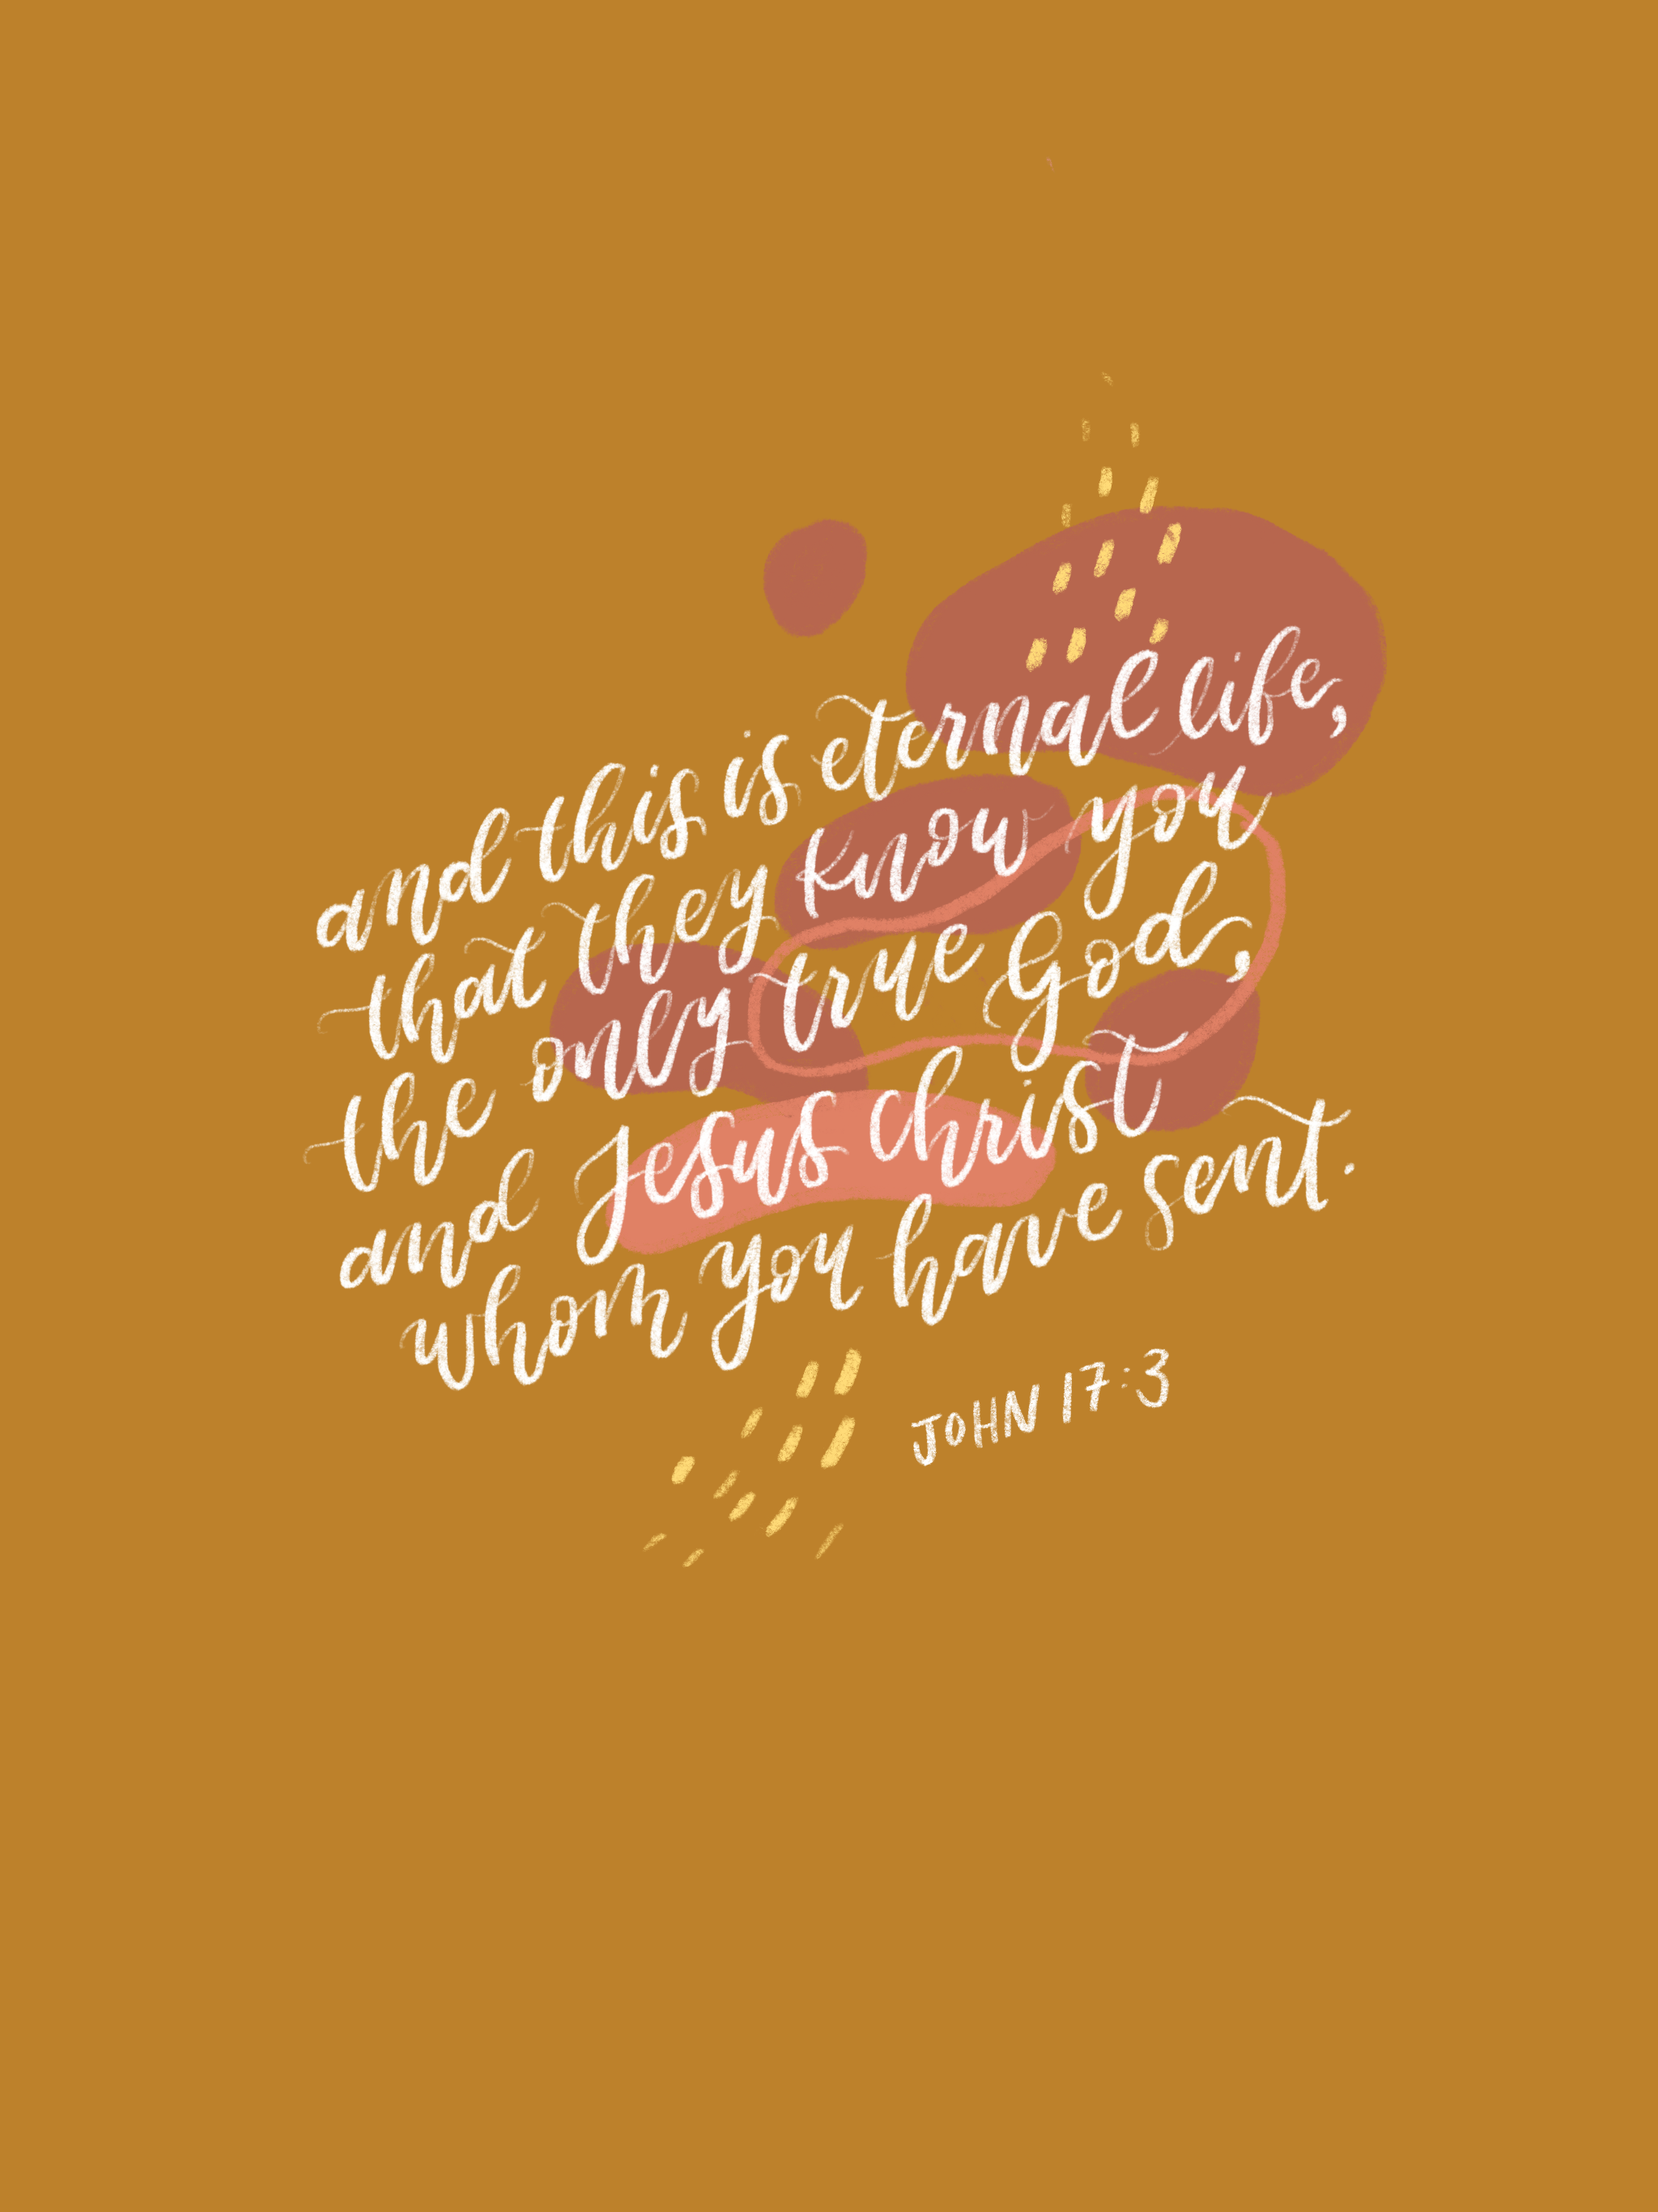 and this is eternal life,
that they know you
the only true God,
and Jesus christ
whom you have sent.
JOHN 17:3